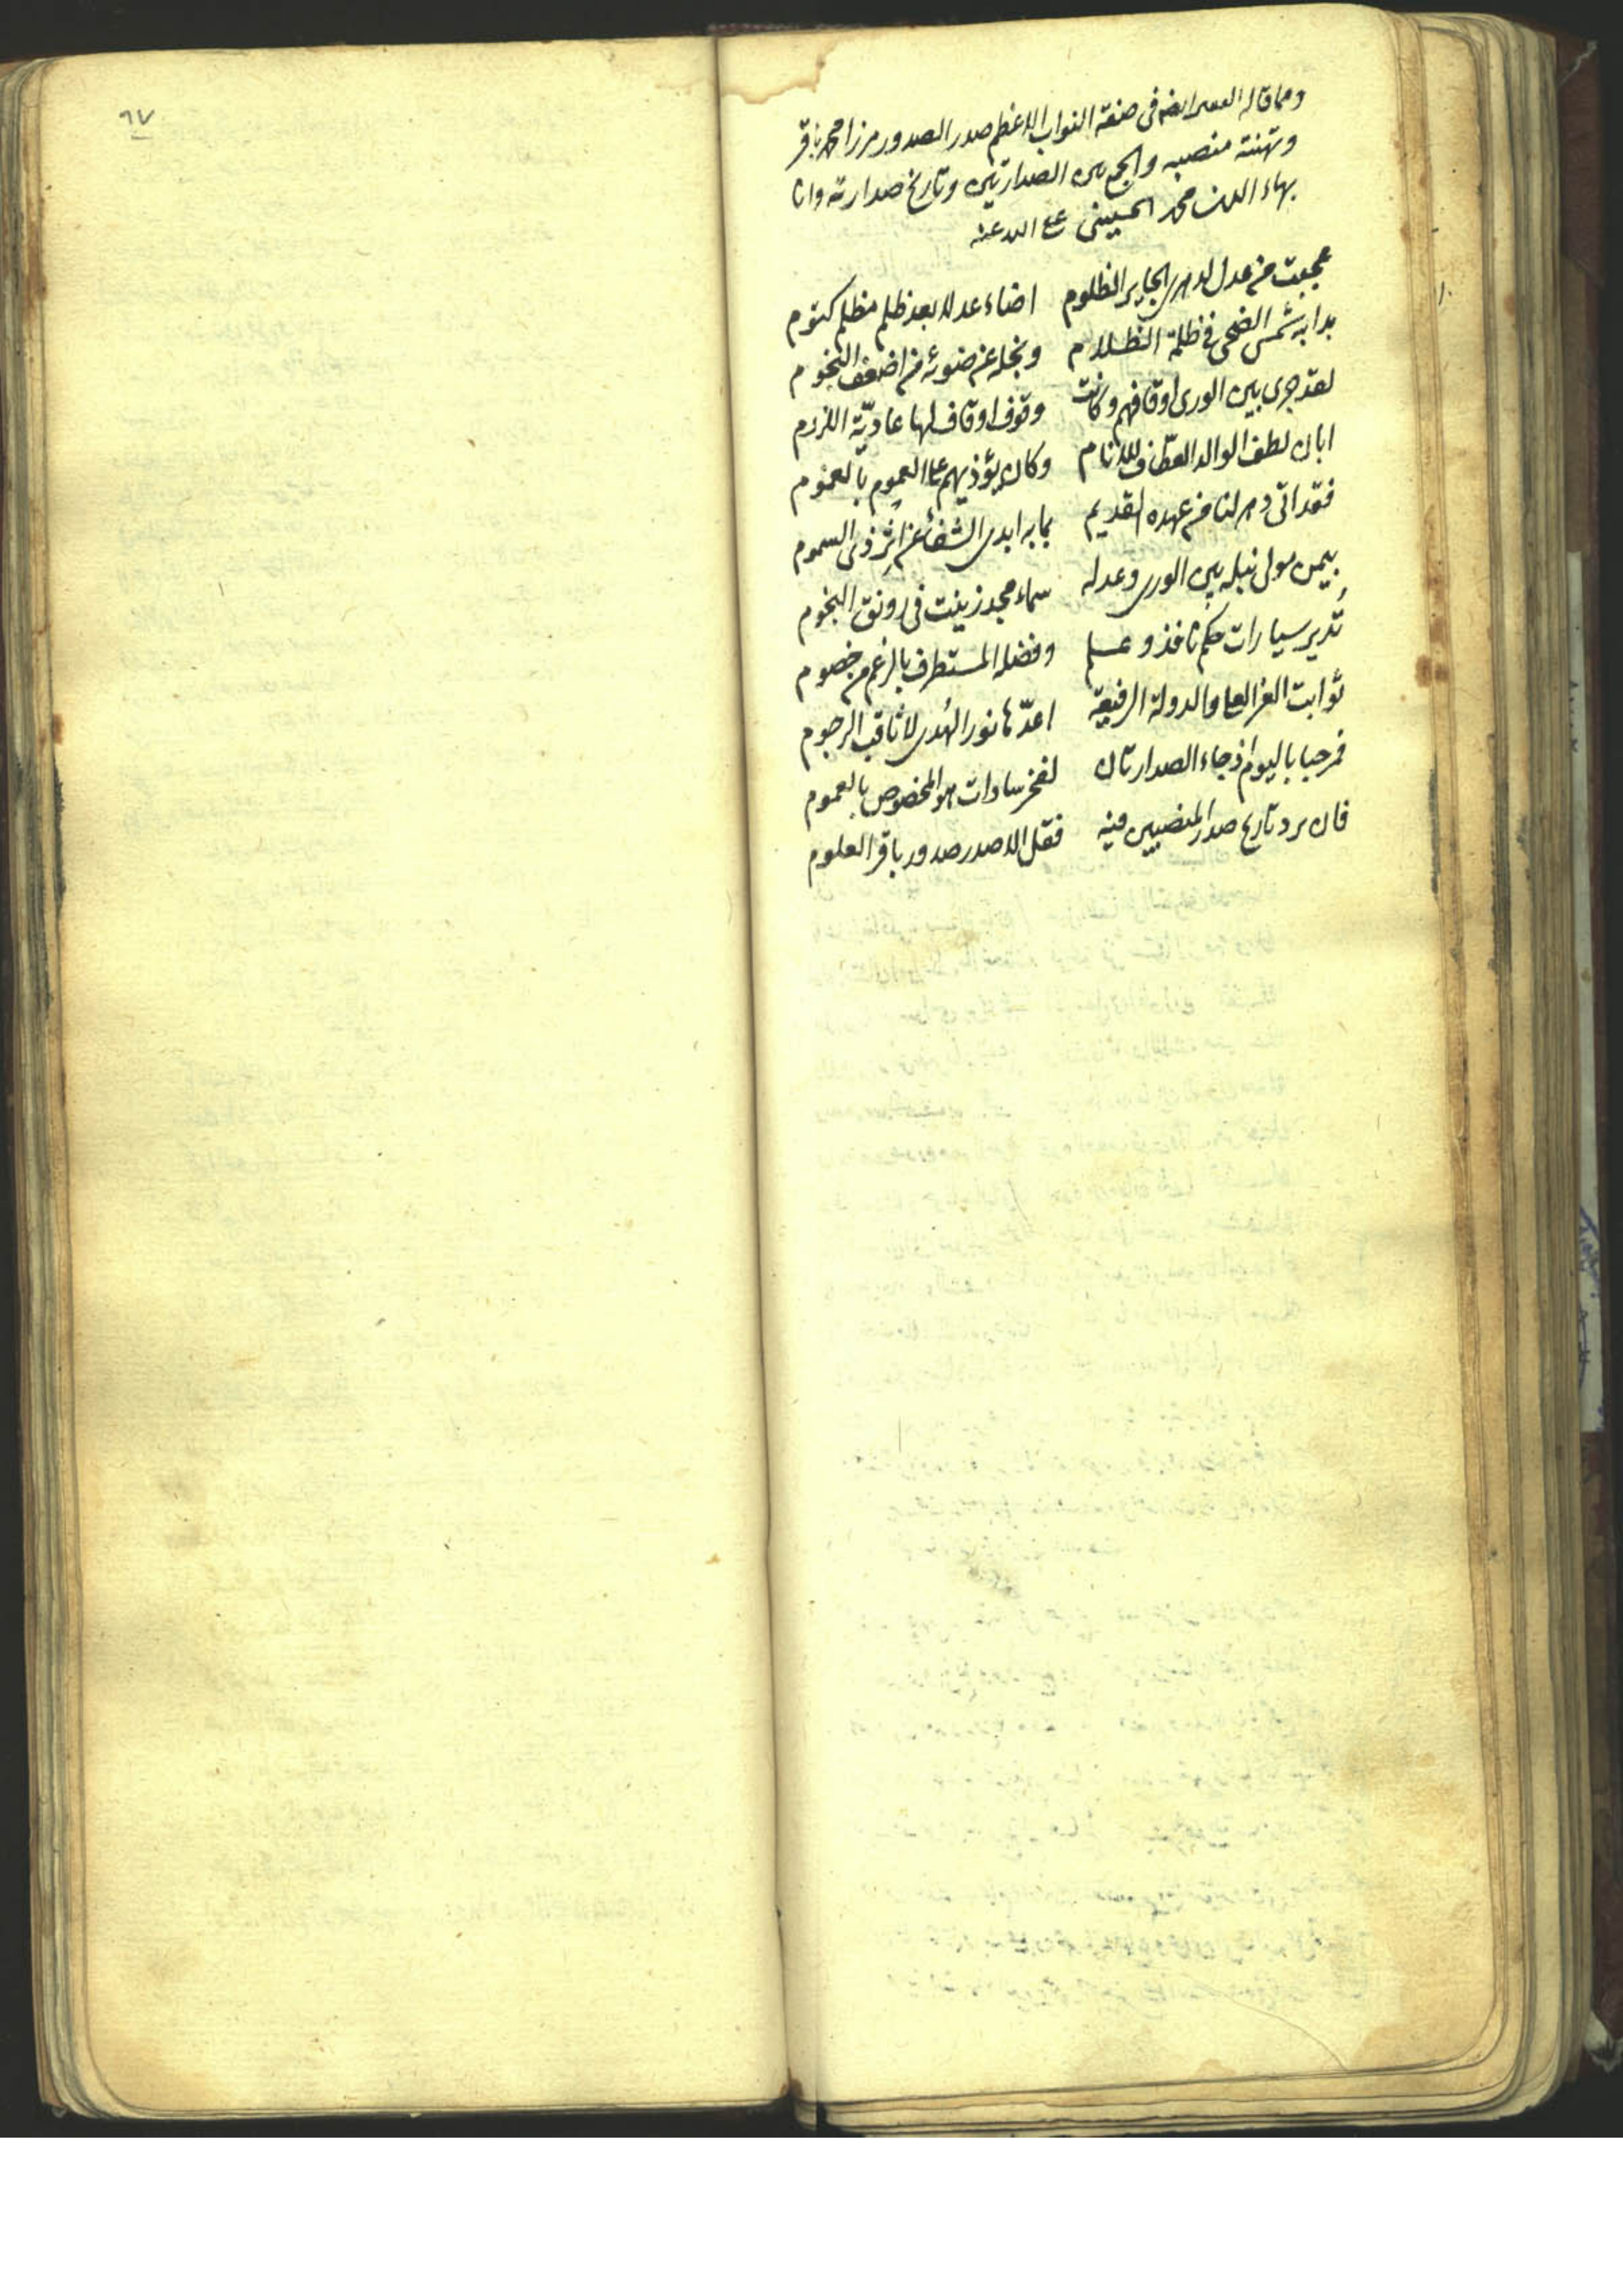 ومما قاله الفقير ايضا فى صفة النواب الاعظم صدر الصدور مرزا محمد باقر
وتهنئة منصبه والجمع بين الصدارتين وتاريخ صدارته وانا
بهاء الدين محمد الحسينى عفى الله عنه
عجبت من عدل الدهر الجاير الظلوم اضاء عدلا بعد ظلم مظلم كتوم
بدا به شمس الضحى فى ظلمة الظلام ونجله عن ضوئه من اضعف النجوم
لقد جرى بين الورى اوقافهم وكانت وقوف اوقاف لها عاديّة اللزوم
ابان لطف الوالد العطّاف للانام وكان يؤذيهم على العموم بالعموم
فقد اتى دهر لنا من عهده القديم بما به ابدى الشفا عن اثر ذى السموم
بيمن مولى نبله بين الورى وعدله سماء مجد زينت فى رونق النجوم
تُدير سيارات حكم نافذ وعلم وفضله المستطرف بالرغم من خصوم
ثوابت العز العلى والدولة الرفيعة اعدّها نور الهُدى لا ثاقب الرجوم
فمرحبا باليوم اذ جاء الصدارتان لفخر سادات هو المخصوص بالعموم
فان يرد تاريخ صدر المنصبين فيه فقل الا صدر صدور باقر العلوم
٦٧